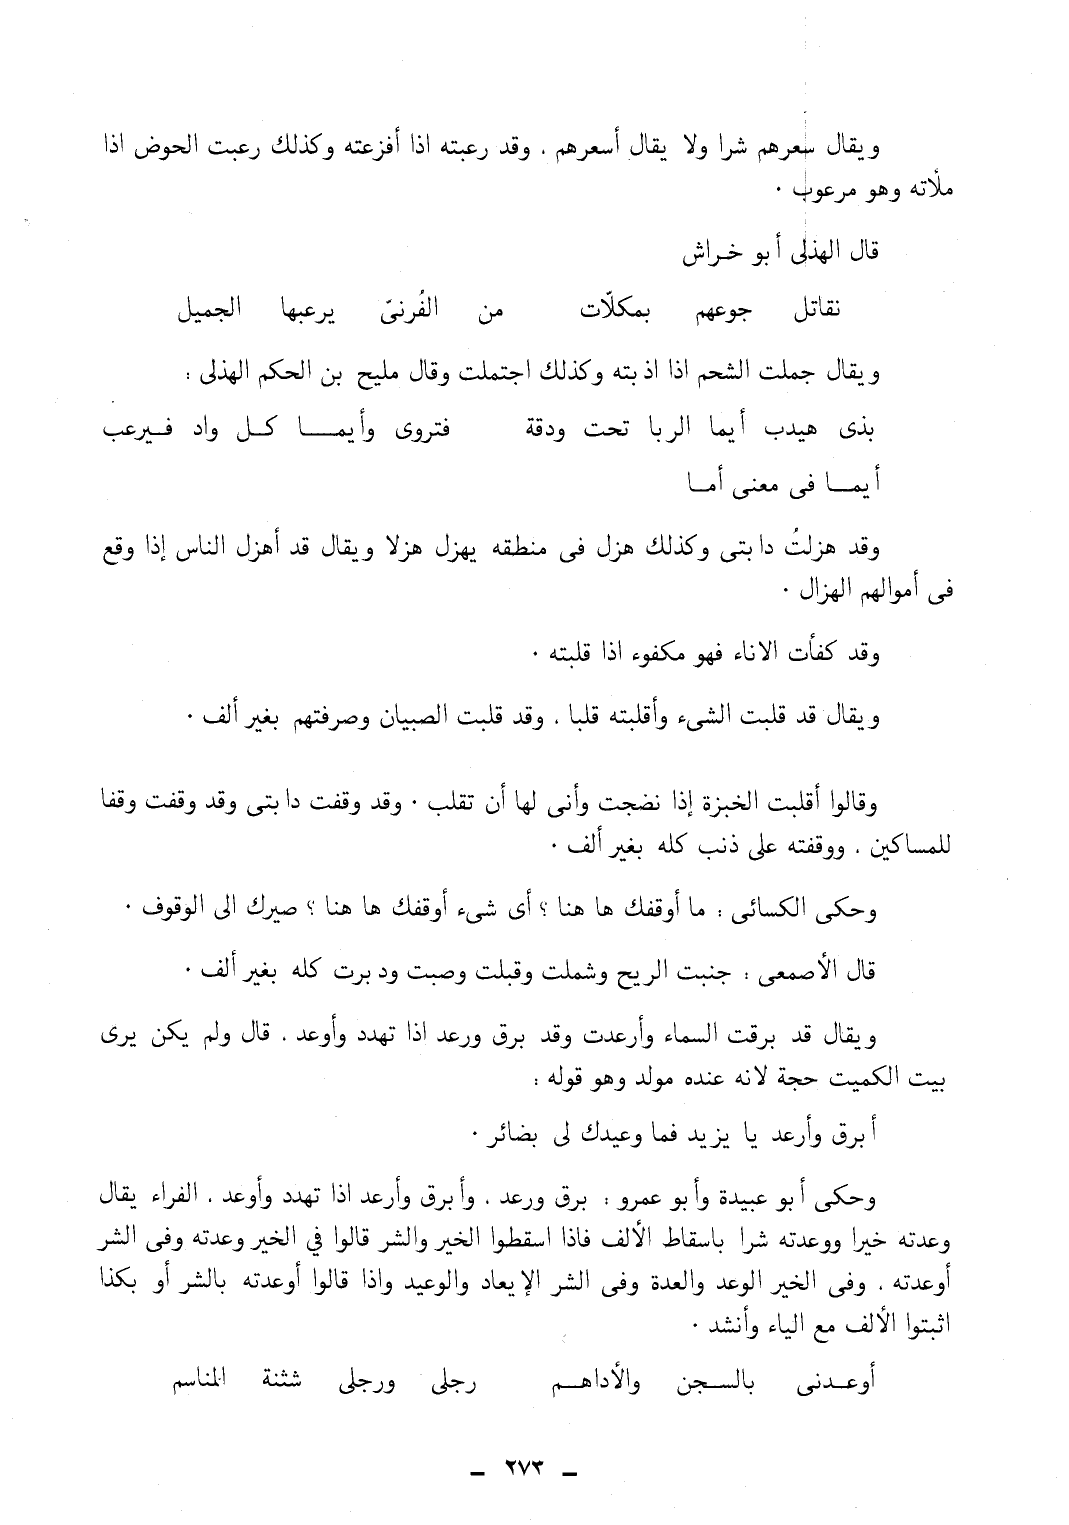 ويقال سعرهم شرا ولا يقال أسعرهم . وقد رعبته اذا أفزعته وكذلك رعبت الحوض اذا
ملأته وهو مرعوب ·
قال الهذلى أبو خراش
نقاتل جوعهم بمكلّات من الفُرنىّ يرعبها الجميل
ويقال جملت الشحم اذا اذبته وكذلك اجتملت وقال مليح بن الحكم الهذلى :
بذى هيدب أيما الربا تحت ودقة فتروى وأيما كل واد فيرعب
أيما فى معنى أما
وقد هزلتُ دابتى وكذلك هزل فى منطقه يهزل هزلا ويقال قد أهزل الناس إذا وقع
فى أموالهم الهزال ·
وقد كفأت الاناء فهو مكفوء اذا قلبته ·
ويقال قد قلبت الشىء وأقلبته قلبا . وقد قلبت الصبيان وصرفتهم بغير ألف ·
وقالوا أقلبت الخبزة إذا نضجت وأنى لها أن تقلب · وقد وقفت دابتى وقد وقفت وقفا
للمساكين . ووقفته على ذنب كله بغير ألف ·
وحكى الكسائى : ما أوقفك ها هنا ؟ أى شىء أوقفك ها هنا ؟ صيرك الى الوقوف ·
قال الأصمعى : جنبت الريح وشملت وقبلت وصبت ودبرت كله بغير ألف ·
ويقال قد برقت السماء وأرعدت وقد برق ورعد اذا تهدد وأوعد . قال ولم يكن يرى
بيت الكميت حجة لانه عنده مولد وهو قوله :
أبرق وأرعد يا يزيد فما وعيدك لى بضائر ·
وحكى أبو عبيدة وأبو عمرو : برق ورعد . وأبرق وأرعد اذا تهدد وأوعد . الفراء يقال
وعدته خيرا ووعدته شرا باسقاط الألف فاذا اسقطوا الخير والشر قالوا في الخير وعدته وفى الشر
أوعدته . وفى الخير الوعد والعدة وفى الشر الإيعاد والوعيد واذا قالوا أوعدته بالشر أو بكذا
اثبتوا الألف مع الياء وأنشد ·
أوعدنى بالسجن والأداهم رجلى ورجلى شثنة المناسم
ـ ٢٧٣ ـ